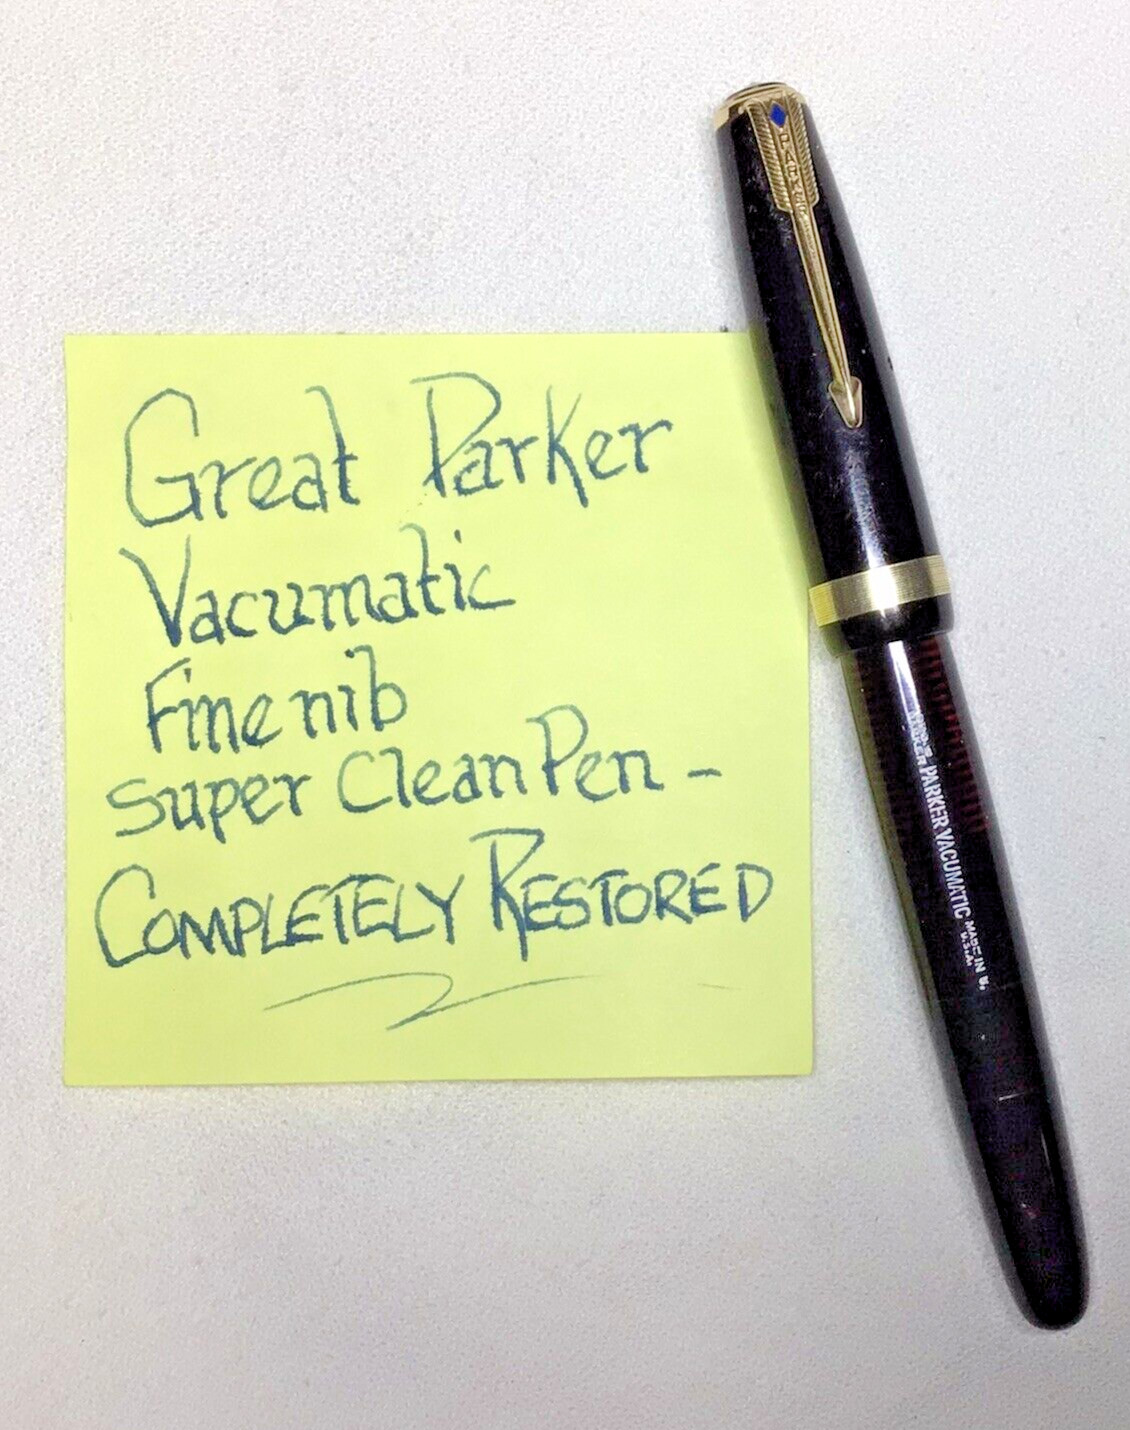 Great Parker
Vacumatic
Fine nib
Super Clean Pen -
COMPLETELY RESTORED
PARKER
PARKER VACUMATIC MADE IN U.
U.S.A.